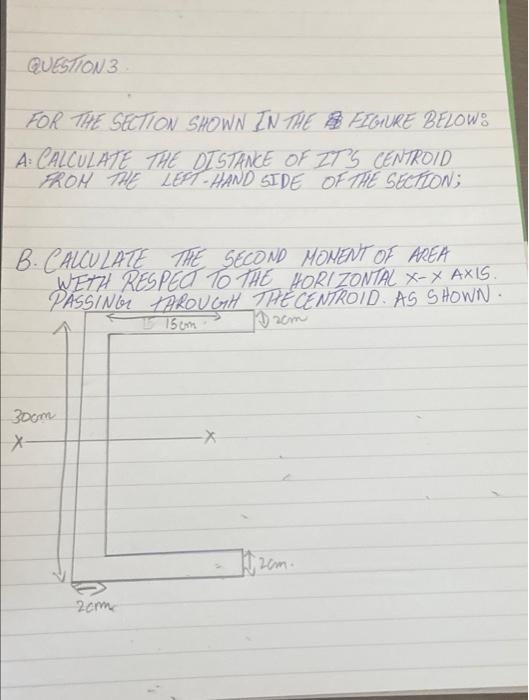 QUESTION 3.
FOR THE SECTION SHOWN IN THE FIGURE BELOW:
A: CALCULATE THE DISTANCE OF IT'S CENTROID
FROM THE LEFT-HAND SIDE OF THE SECTION;
B. CALCULATE THE SECOND MOMENT OF AREA
WITH RESPECT TO THE HORIZONTAL X-X AXIS.
PASSING THROUGH THE CENTROID. AS SHOWN.
15cm
2cm
30cm
X X
2cm.
2cm